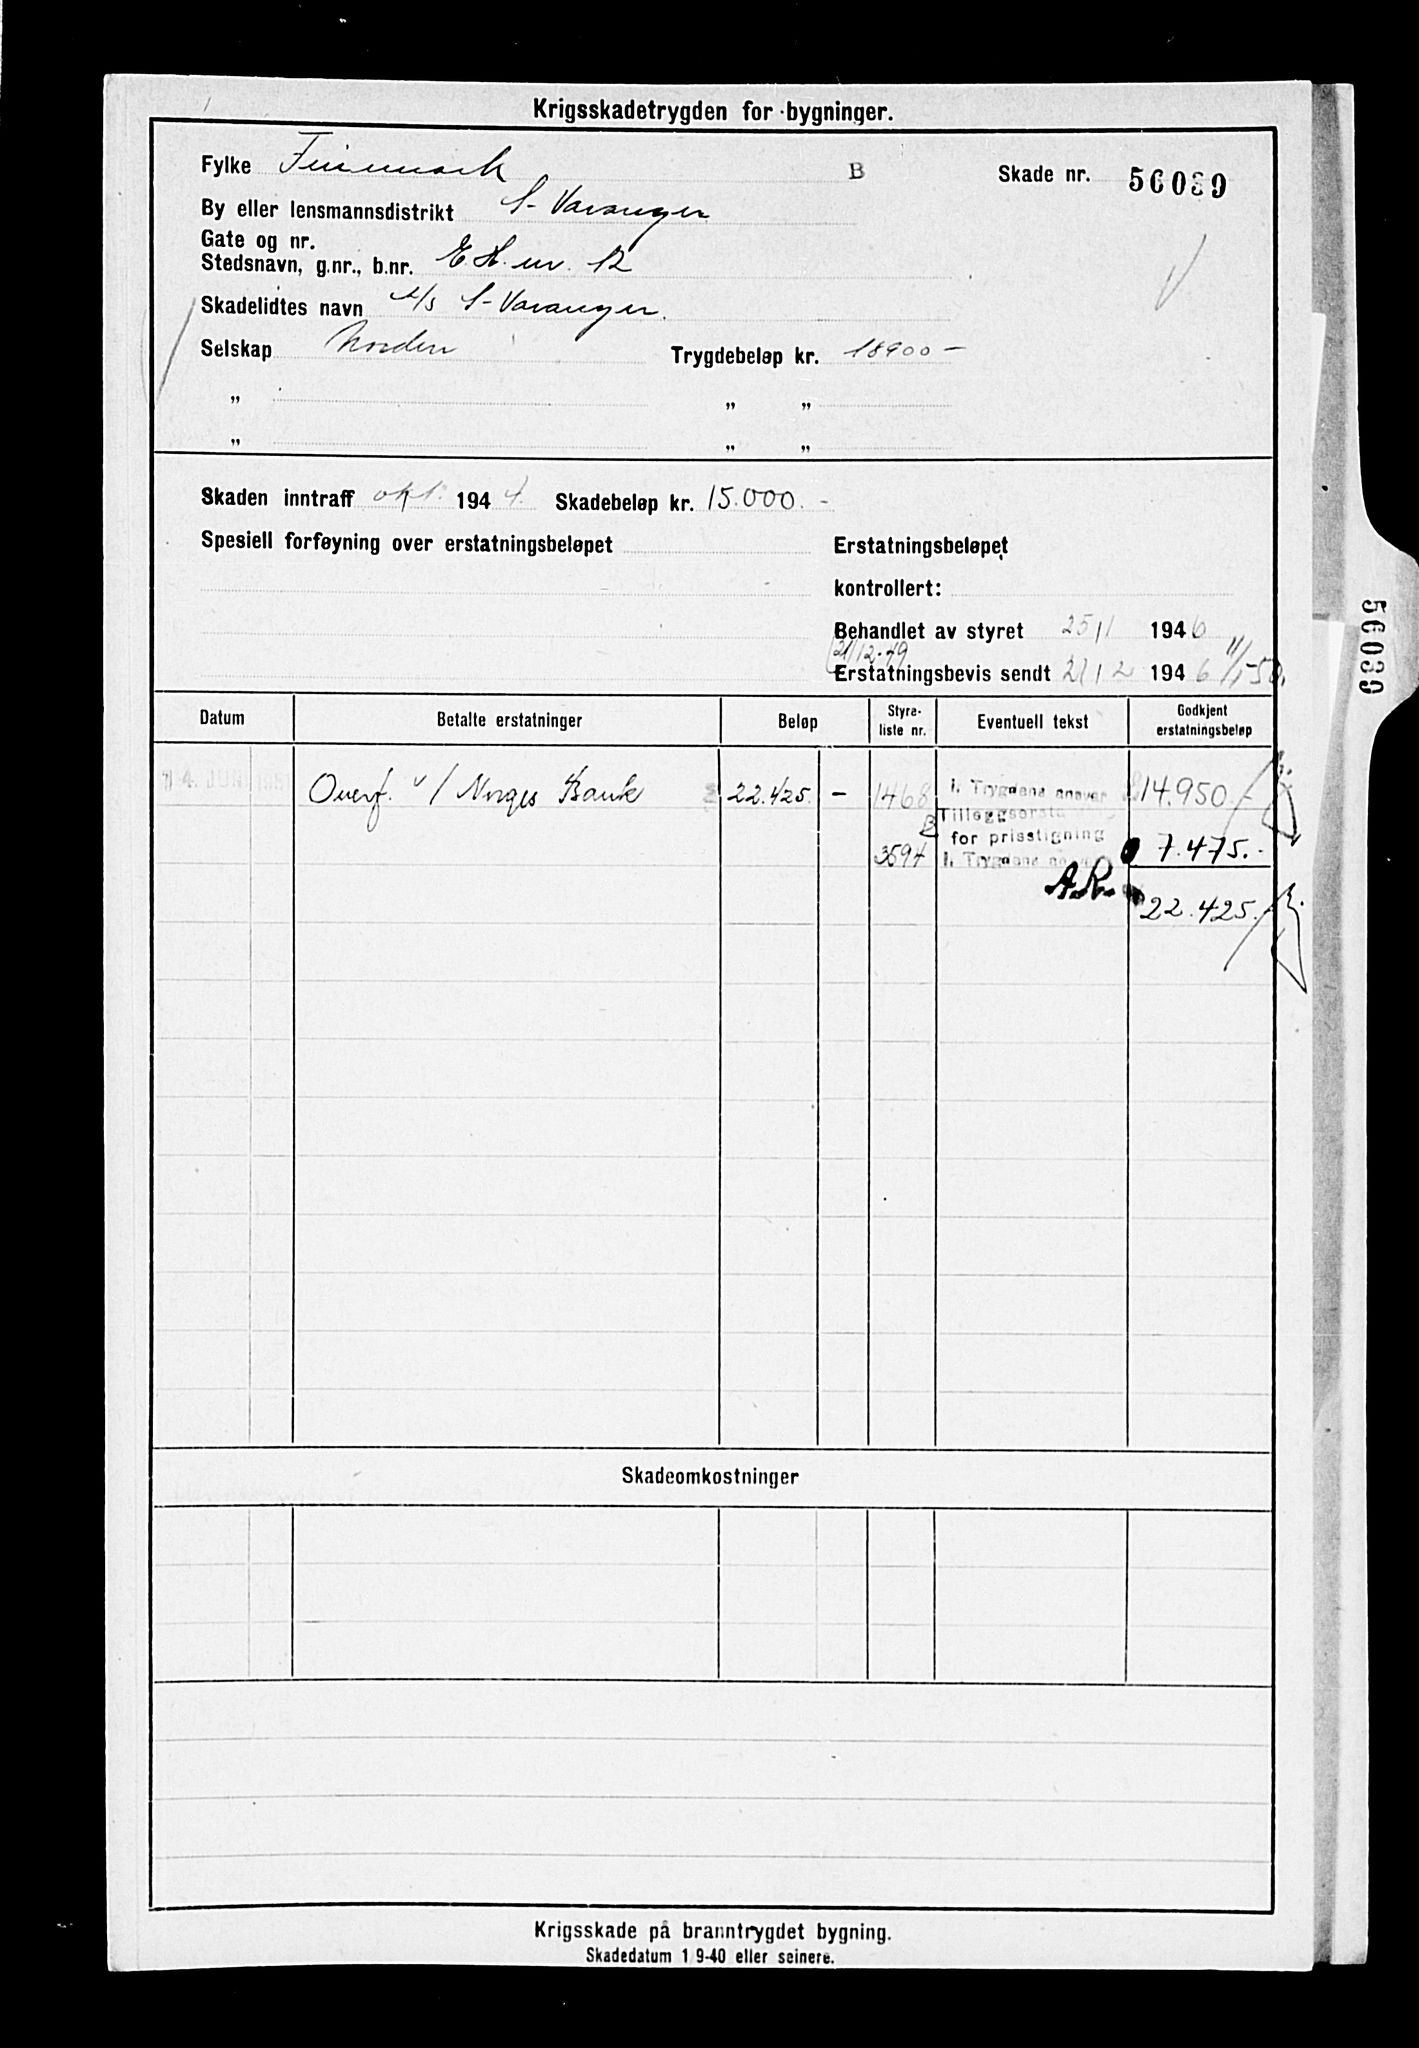 Krigsskadetrygden for bygninger.
Fylke Finnmark B Skade nr. 56039
By eller lensmannsdistrikt S-Varanger
Gate og nr.
Stedsnavn, g.nr., b.nr. E.H. nr. 12
Skadelidtes navn A/S S-Varanger.
Selskap Norden Trygdebeløp kr. 18900 -
" " "
" " "
Skaden inntraff okt. 1944. Skadebeløp kr. 15.000.-
Spesiell forføyning over erstatningsbeløpet Erstatningsbeløpet
kontrollert:
Behandlet av styret 25/1 1946
21/12-49 11/1-50.
Erstatningsbevis sendt 2/12 1946
56039
Datum Betalte erstatninger Beløp Styre-liste nr. Eventuell tekst Godkjent erstatningsbeløp
Overf. v/ Norges Bank 22.425. - 1468 I. Trygdens ansvar 14.950.-
B Tilleggserstatning
for prisstigning
3594 I. Trygdens 7.475.-
A.R. 22.425.
Skadeomkostninger
Krigsskade på branntrygdet bygning.
Skadedatum 1 9-40 eller seinere.